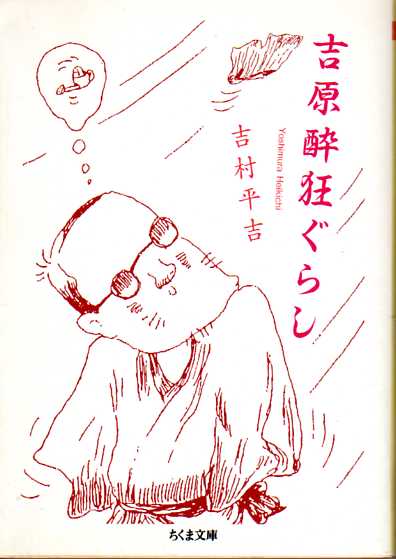 吉原酔狂ぐらし
Yoshimura Heikichi
吉村平吉
ちくま文庫